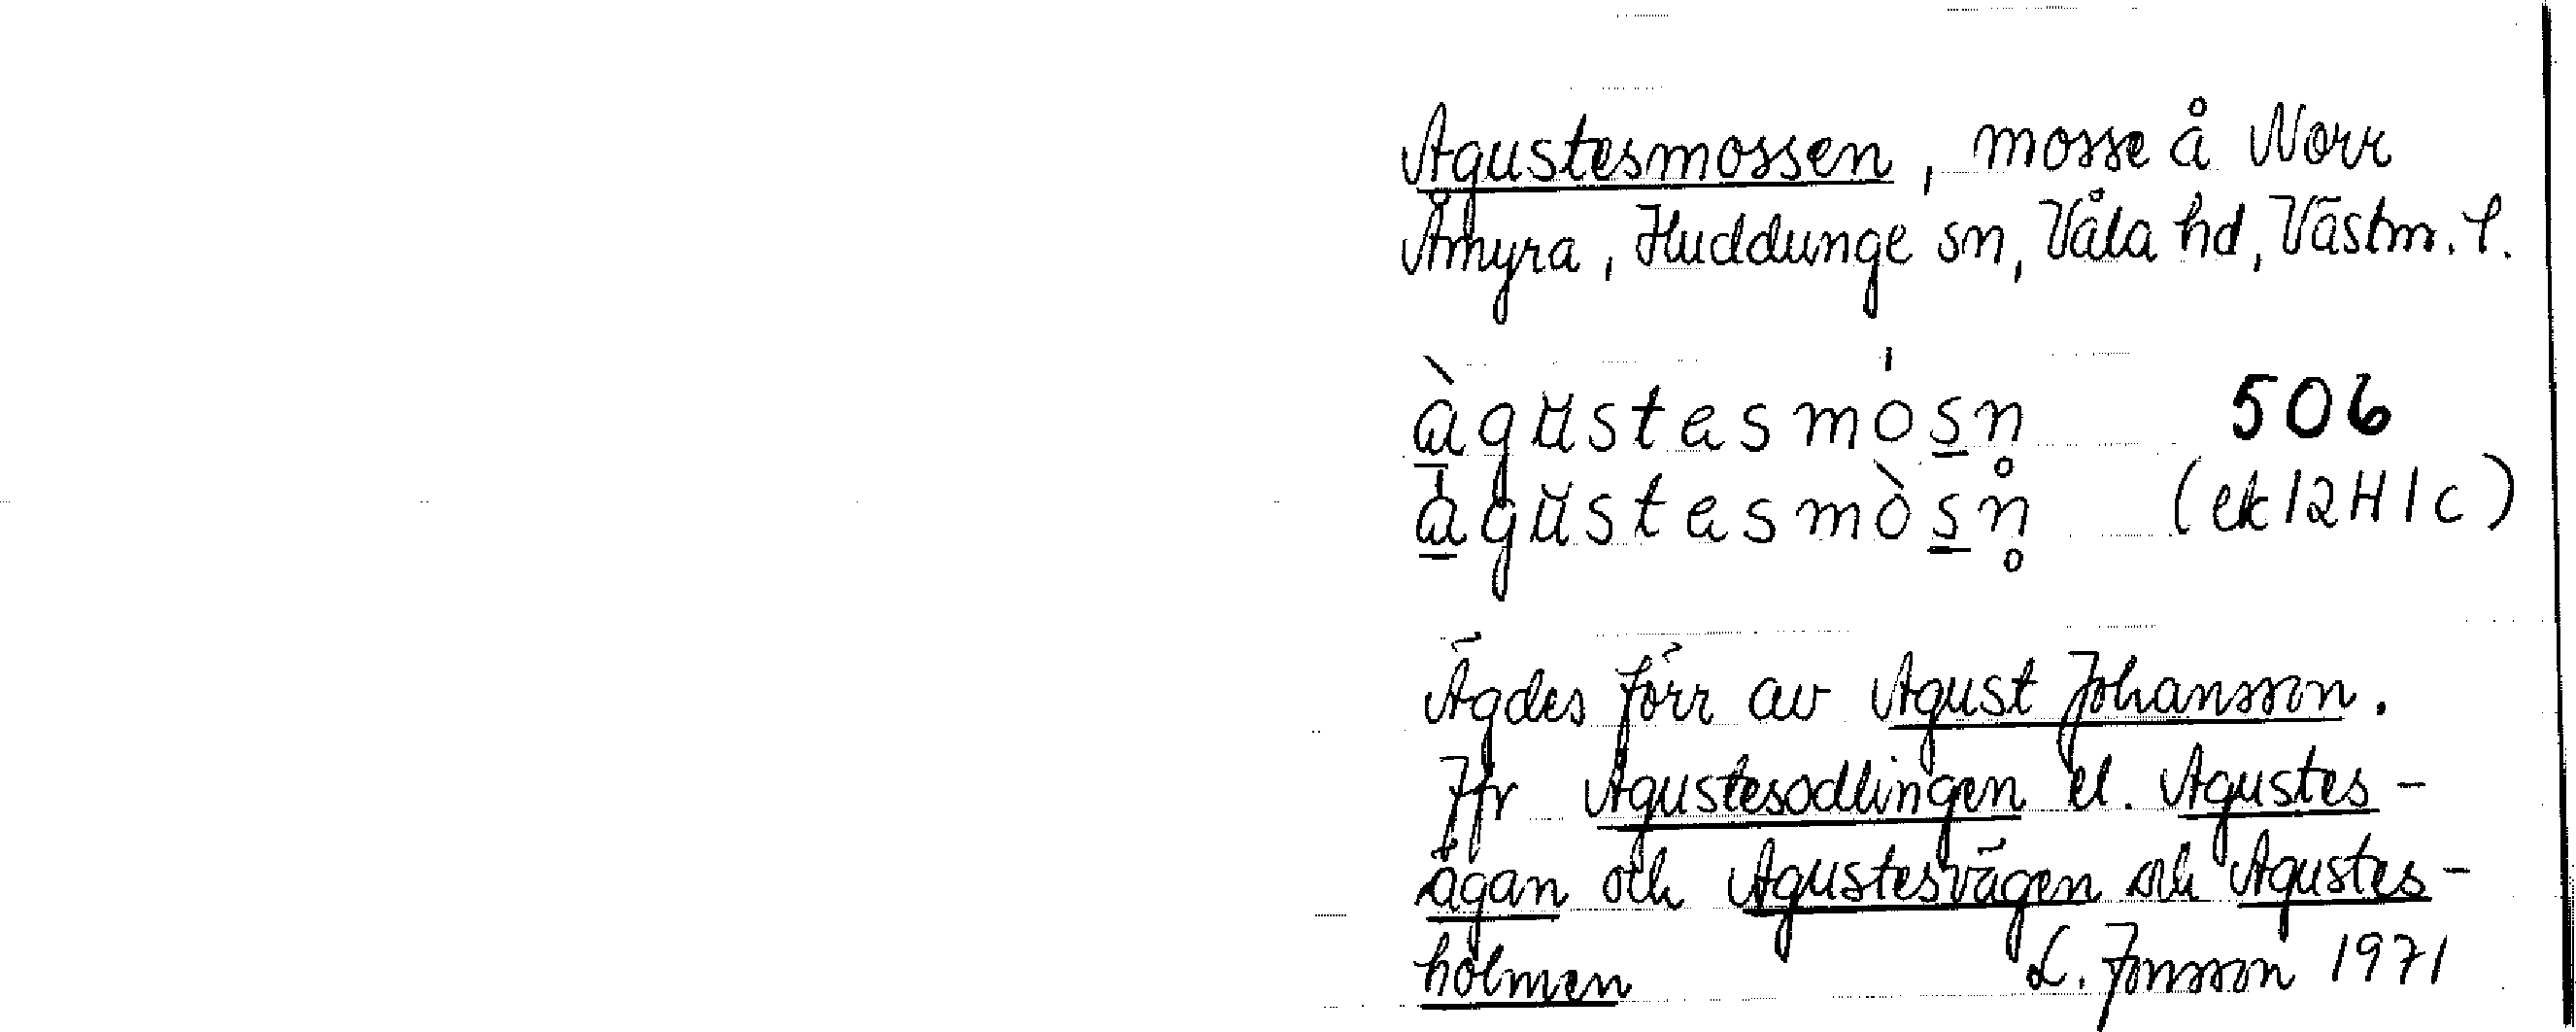 Agustesmossen, mosse å Norr
Åmyra, Huddunge sn, Våla hd, Västm. l.
àgustesmosn 506
agustesmòsn (ek 12H1c)
Ägdes förr av Agust Johansson.
Jfr Agustesodlingen el. Agustes-
ägan och Agustesvägen och Agustes-
holmen L. Jonsson 1971